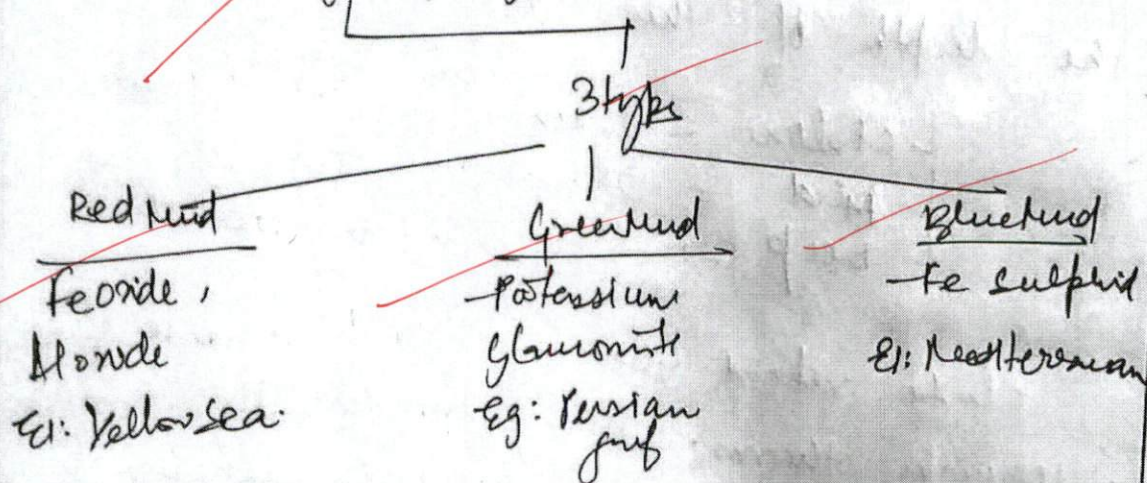 3 types
Red Mud
Fe oxide,
Al oxide
Eg: Yellow Sea.
Green Mud
- Potassium
Glauconite
Eg: Persian
gulf
Blue Mud
- Fe sulphid
Eg: Mediterranean